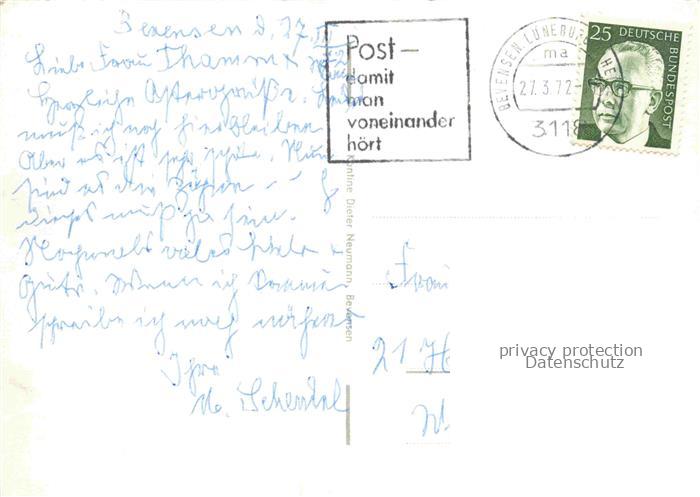 Bevensen d. 27.
Liebe Frau Thamm
Herzliche Ostergrüße. Leider
muß ich noch hierbleiben
Aber es ist sehr schön. Nun
sind es die
muß ja sein.
Nochmals vieles Liebe
Gute. Wenn ich komme
schreibe ich noch näheres
Ihre
M. Schendel
Post –
damit
man
voneinander
hört
BEVENSEN, LÜNEBURGER HEIDE
ma
27.3.72
3118
25 DEUTSCHE BUNDESPOST
Dieter Neumann, Bevensen
Frau
21 H
privacy protection
Datenschutz